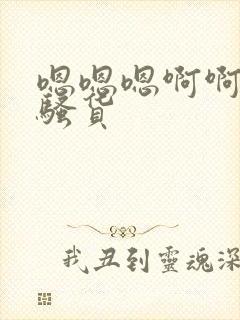 嗯嗯嗯啊啊
騷货
我丑到靈魂深